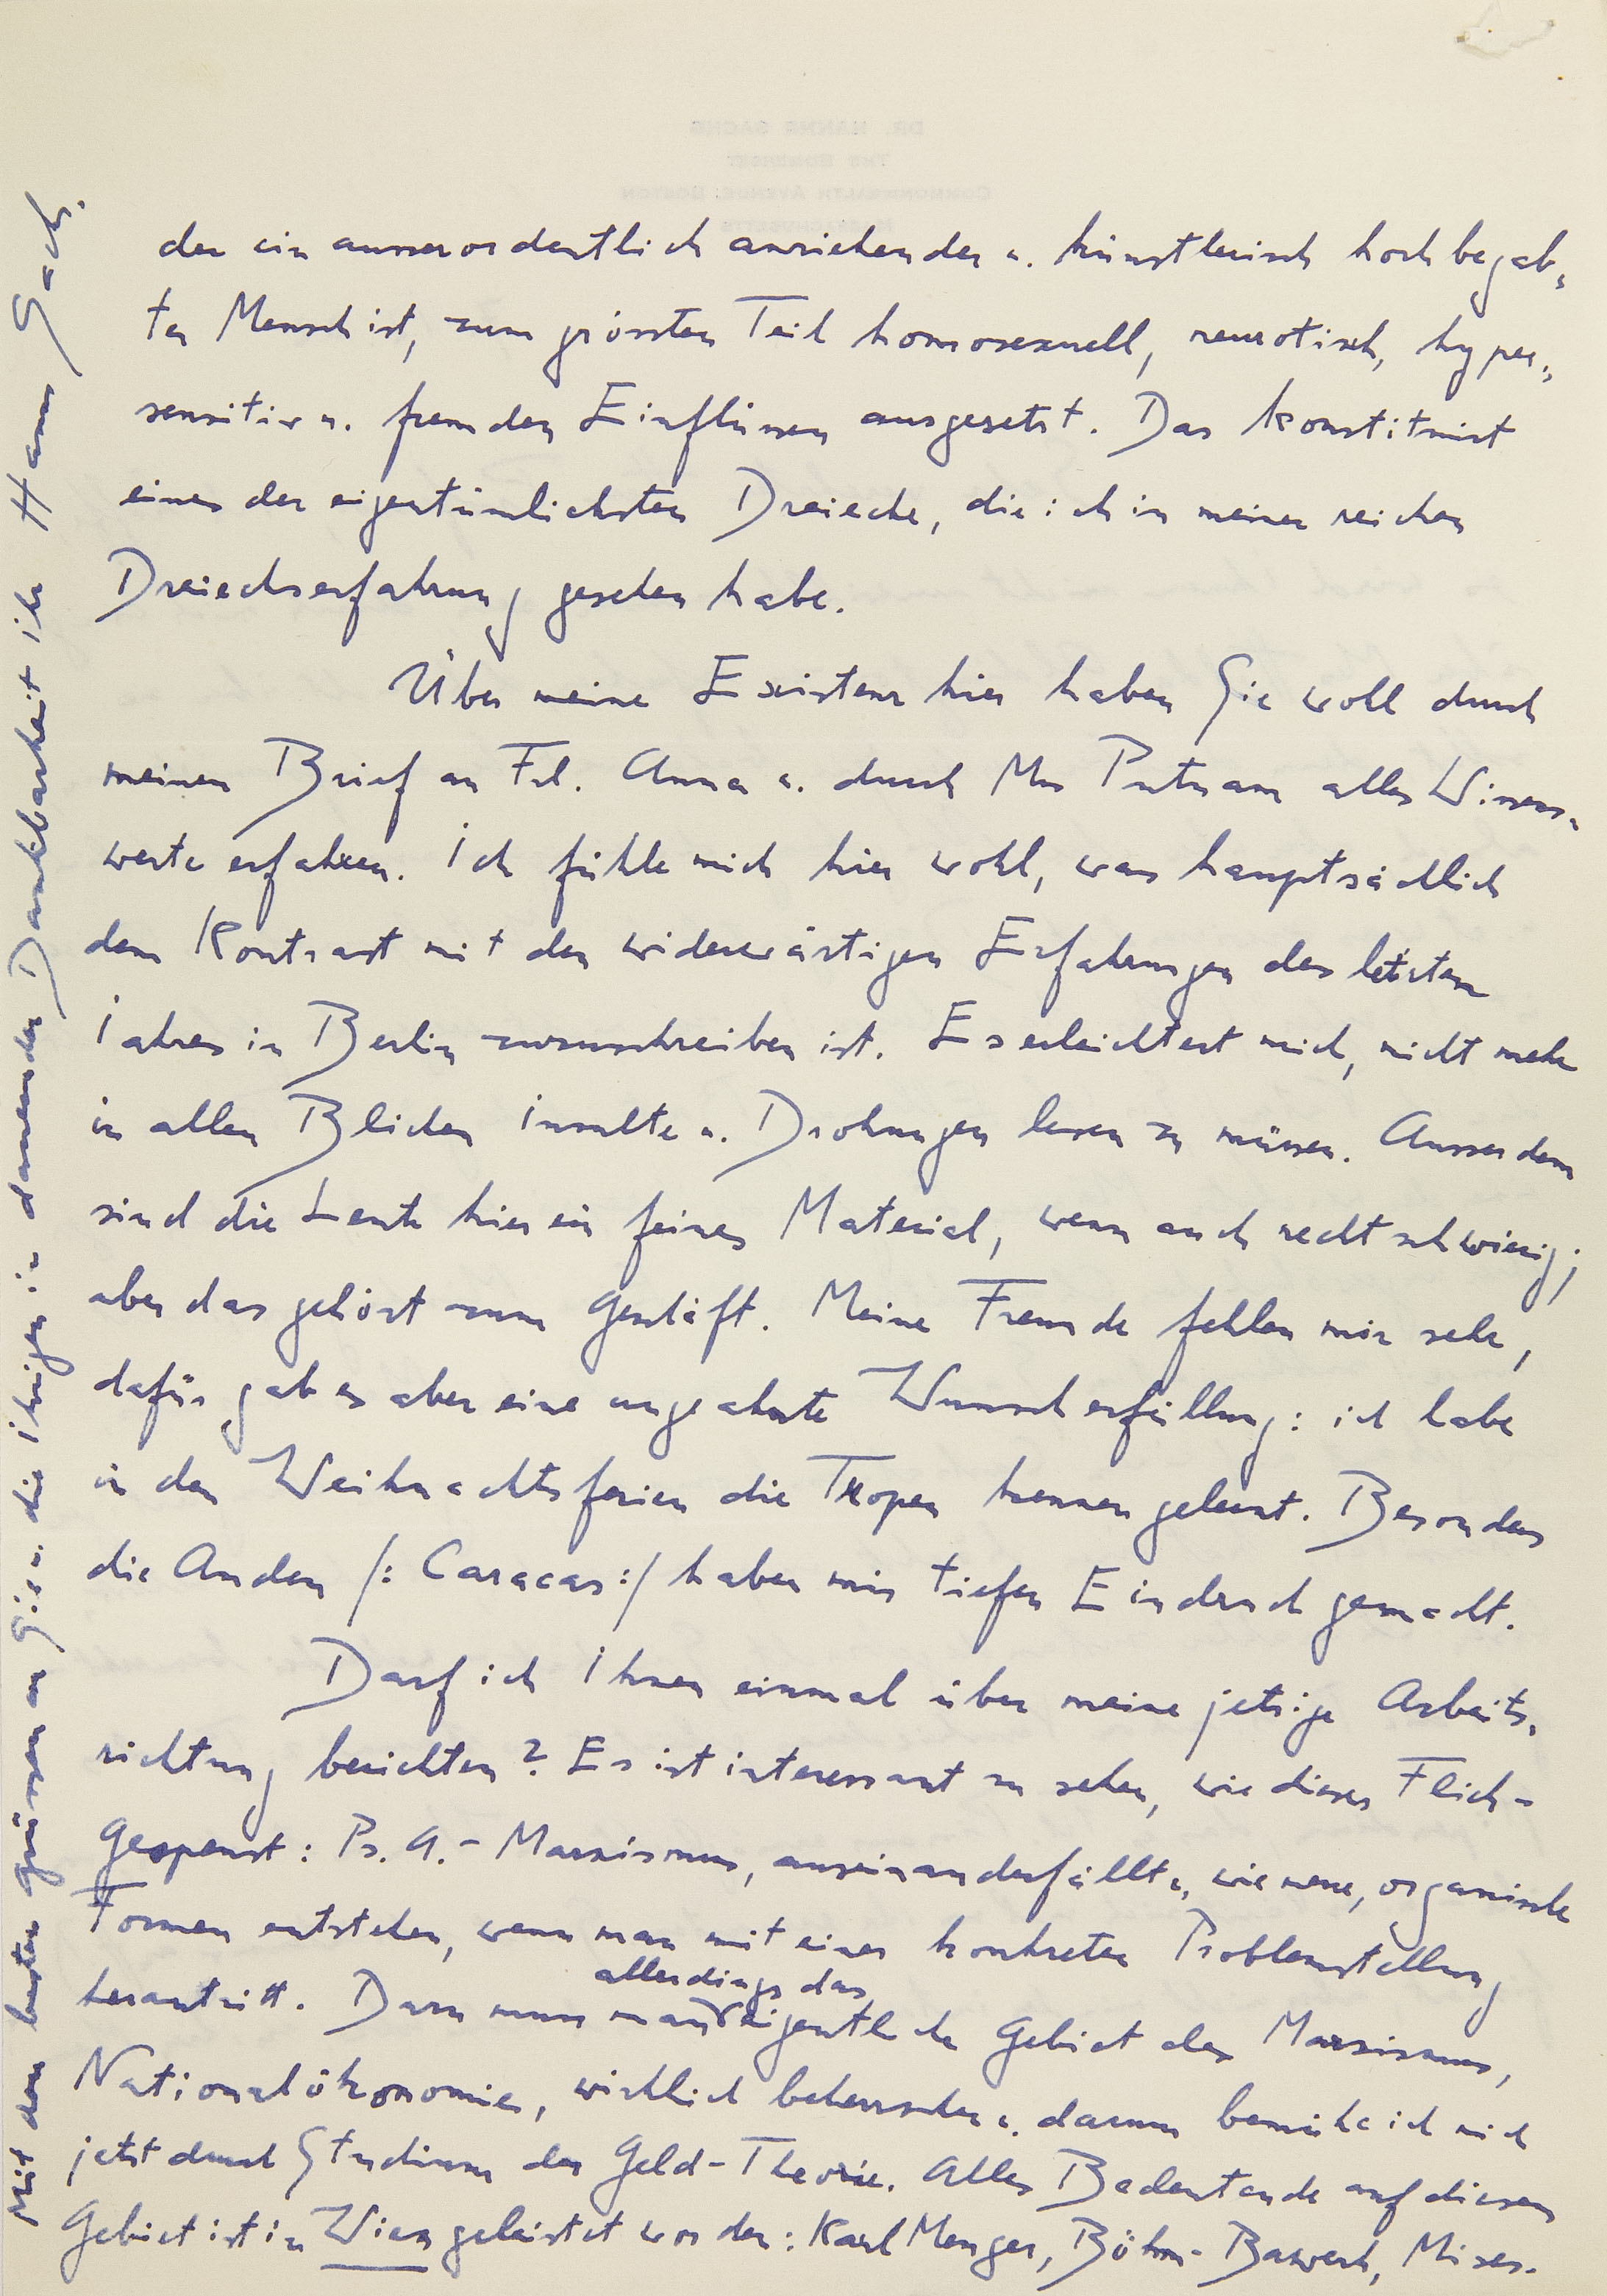 der ein ausserordentlich anziehender u. künstlerisch hochbegab-
ter Mensch ist, zum grössten Teil homosexuell, neurotisch, hyper-
sensitiv u. fremden Einflüssen ausgesetzt. Das konstituirt
eines der eigentümlichsten Dreiecke, die ich in meiner reichen
Dreieckserfahrung gesehen habe.
Über meine Existenz hier haben Sie wohl durch
meinen Brief an Frl. Anna u. durch Mrs Putnam alles Wissens-
werte erfahren. Ich fühle mich hier wohl, was hauptsächlich
dem Kontrast mit den widerwärtigen Erfahrungen des letzten
Jahres in Berlin zuzuschreiben ist. Es erleichtert mich, nicht mehr
in allen Blicken Insulte u. Drohungen lesen zu müssen. Ausserdem
sind die Leute hier ein feines Material, wenn auch recht schwierig;
aber das gehört zum Geschäft. Meine Freunde fehlen mir sehr,
dafür gab es aber eine ungeahnte Wunscherfüllung: ich habe
in den Weihnachtsferien die Tropen kennen gelernt. Besonders
die Anden /: Caracas :/ haben mir tiefen Eindruck gemacht.
Darf ich Ihnen einmal über meine jetzige Arbeits-
richtung berichten? Es ist interessant zu sehen, wie dieses Reich-
Gespenst: Ps. A.- Marxismus, auseinanderfällt u. wie neue, organische
Formen entstehen, wenn man mit einer konkreten Problemstellung
herantritt. Dazu muss man allerdings das eigentliche Gebiet des Marxismus,
Nationalökonomie, wirklich beherrschen u. darum bemühe ich mich
jetzt durch Studium der Geld-Theorie. Alles Bedeutende auf diesem
Gebiet ist in Wien geleistet worden: Karl Menger, Böhm-Bawerk, Mises.
Mit den besten Grüssen an Sie u. die Ihrigen in dauernder Dankbarkeit ihr Hanns Sachs.
DR. HANNS SACHS
THE SOMERSET
COMMONWEALTH AVENUE, BOSTON
MASSACHUSETTS